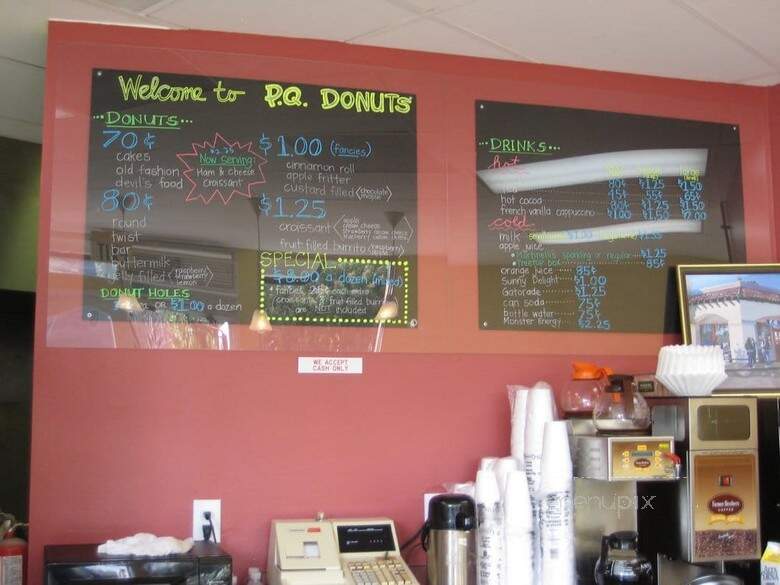 Welcome to P.Q. DONUTS
DONUTS
70¢
cakes
old fashion
devil's food
80¢
round
twist
bar
buttermilk
jelly filled raspberry strawberry lemon
DONUT HOLES
OR $1.00 a dozen
$2.75
Now Serving:
Ham & Cheese
croissant
$1.00 (fancies)
cinnamon roll
apple fritter
custard filled chocolate maple
$1.25
croissant apple
cream cheese
strawberry cream cheese
blueberry cream cheese
fruit filled burrito raspberry apple
SPECIAL
$8.00 a dozen (mixed)
fancies 20¢ each more
croissants & fruit filled burritos
are NOT included
DRINKS
hot
80¢ $1.25 $1.50
hot cocoa
65¢
90¢ $1.25 $1.50
french vanilla cappuccino $1.00 $1.50 $2.00
cold
milk
apple juice
Martinellis sparkling or regular $1.25
Treetop box 85¢
orange juice 85¢
Sunny Delight $1.00
Gatorade $1.25
can soda 75¢
bottle water 75¢
Monster Energy $2.25
WE ACCEPT
CASH ONLY
Farmer Brothers
COFFEE
menupix